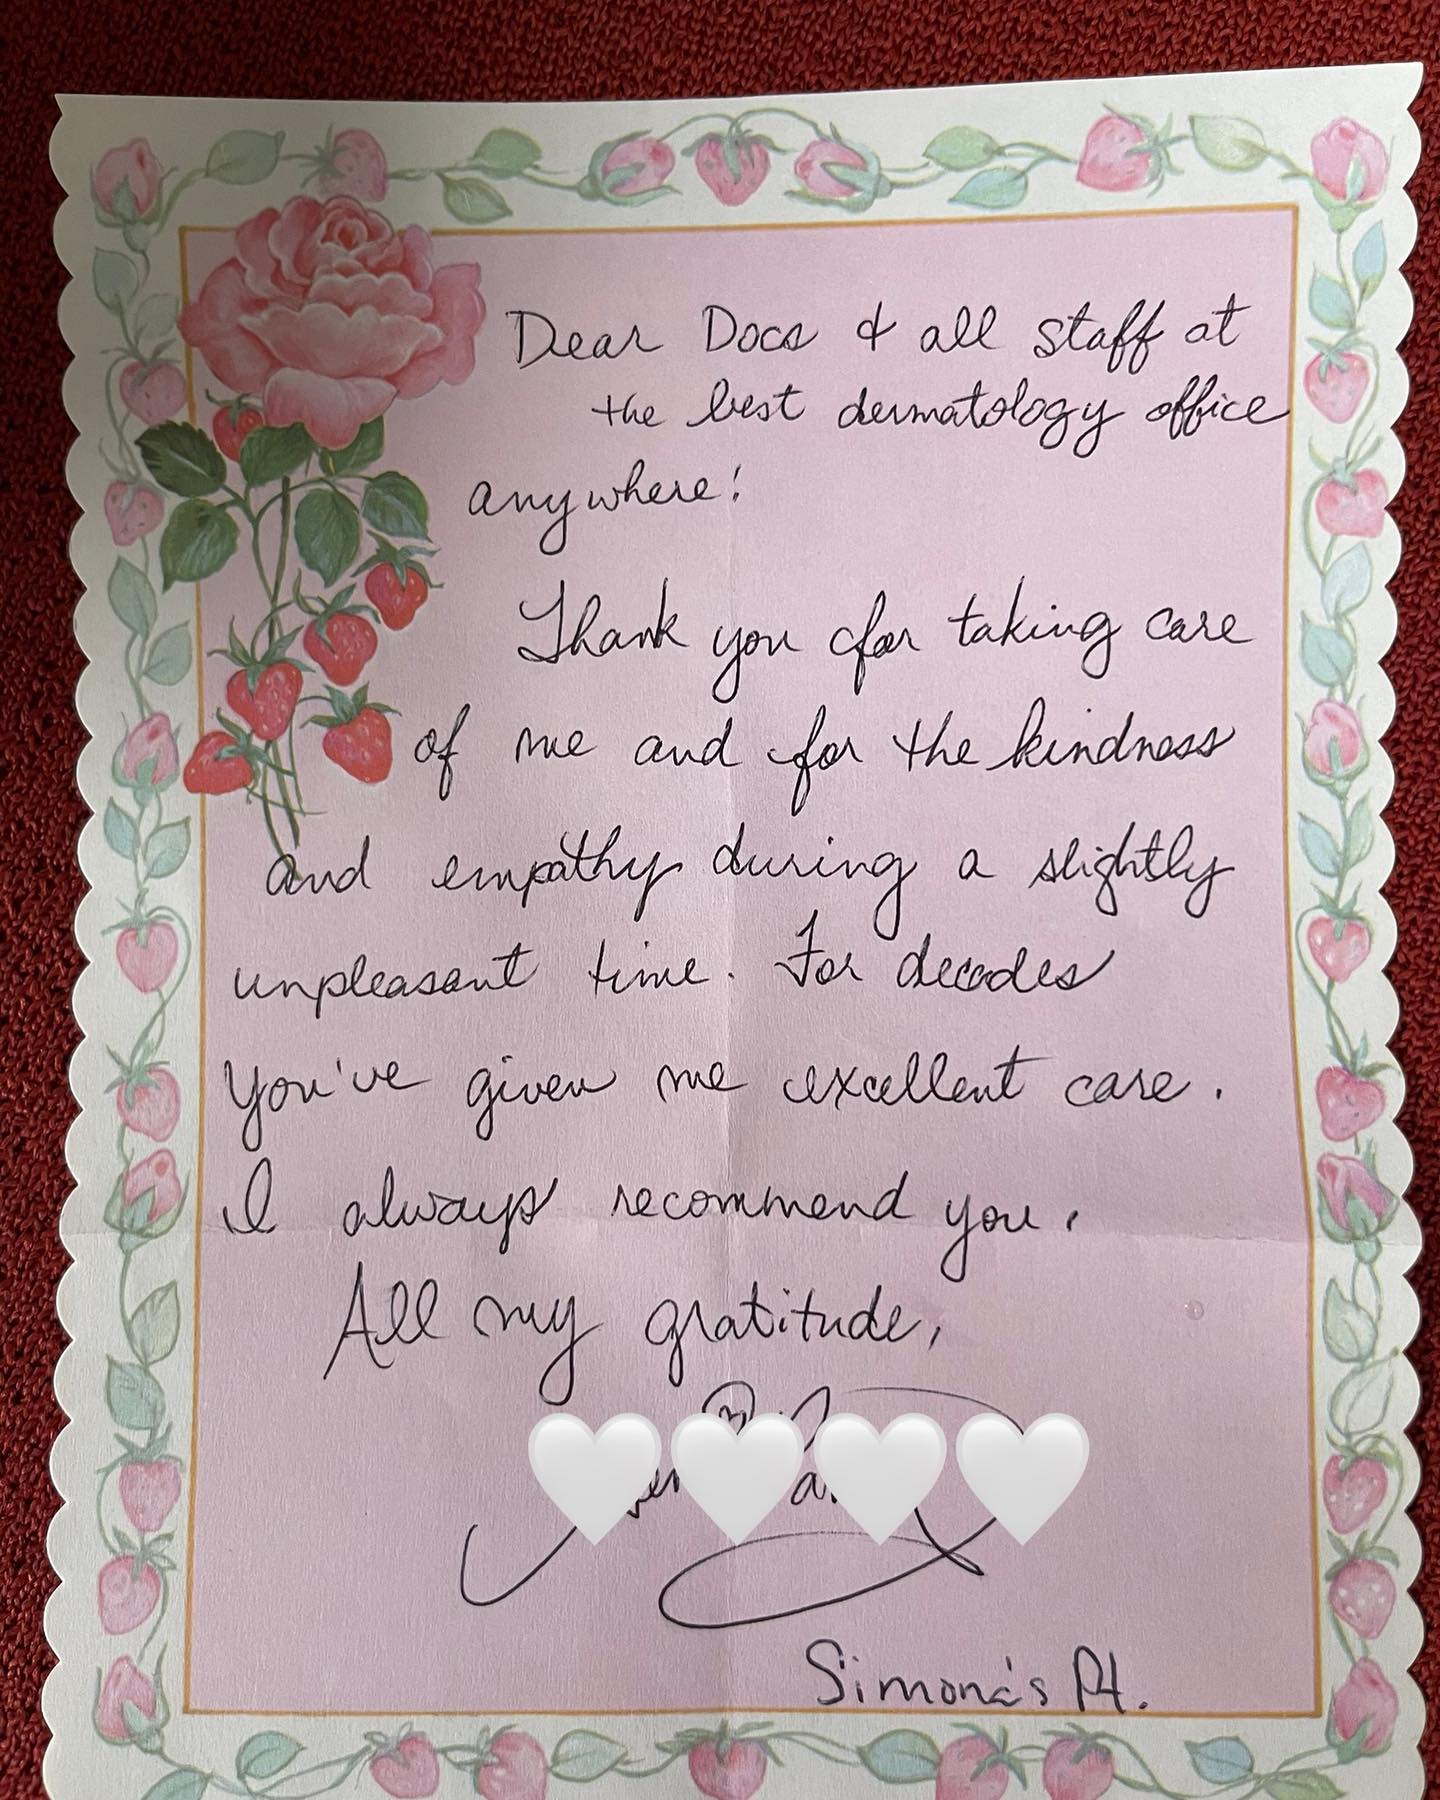 Dear Docs & all staff at
the best dermatology office
anywhere!
Thank you for taking care
of me and for the kindness
and empathy during a slightly
unpleasant time. For decades
you've given me excellent care.
I always recommend you.
All my gratitude,
Simona's Pt.